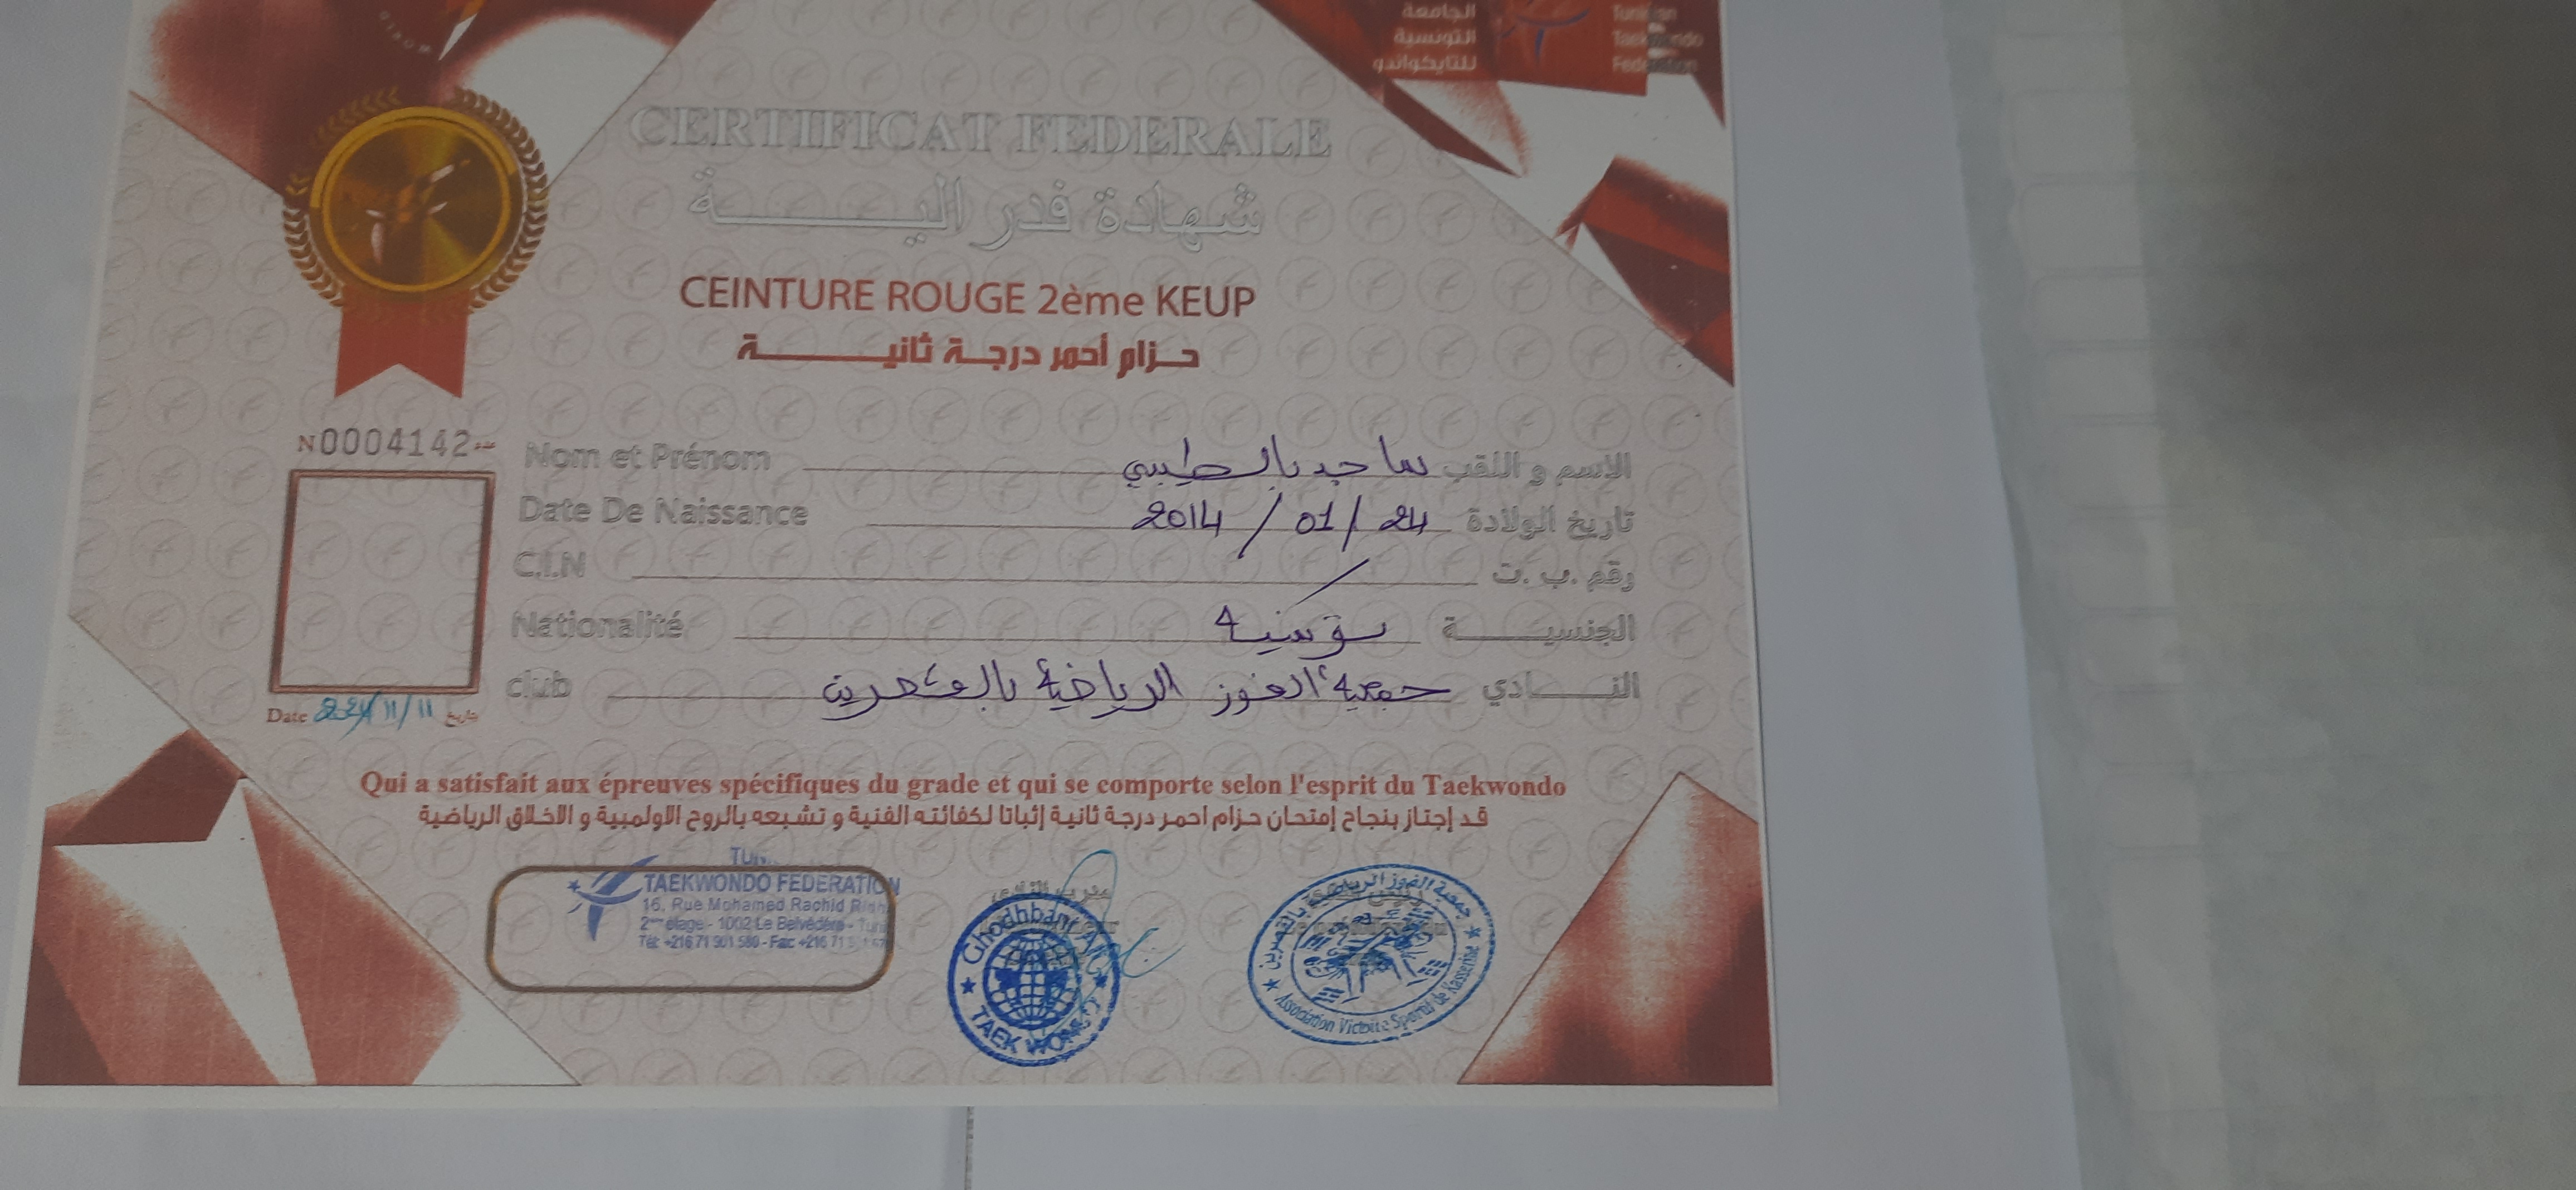 الجامعة
التونسية
للتايكواندو
Tunisian
Taekwondo
Federation
WORLD
CERTIFICAT FEDERALE
شهادة فدرالية
CEINTURE ROUGE 2ème KEUP
حزام أحمر درجة ثانية
N0004142 عدد
Nom et Prénom ساجد بالطيبي الاسم و اللقب
Date De Naissance 2014 / 01 / 24 تاريخ الولادة
C.I.N / رقم ب. ت
Nationalité تونسية الجنسية
club جمعية الفوز الرياضية بالقصرين النادي
Date 11/11 تاريخ
Qui a satisfait aux épreuves spécifiques du grade et qui se comporte selon l'esprit du Taekwondo
قد إجتاز بنجاح إمتحان حزام احمر درجة ثانية إثباتا لكفائته الفنية و تشبعه بالروح الاولمبية و الاخلاق الرياضية
TAEKWONDO FEDERATION
16, Rue Mohamed Rachid
2ème étage - 1002 Le Belvédère -
Tél: +216 71 901 580 - Fax: +216 71
مدرب النادي
Ghodhbani
TAEK WON
جمعية الفوز الرياضية بالقصرين
Association Victoire Sportif de Kasserine